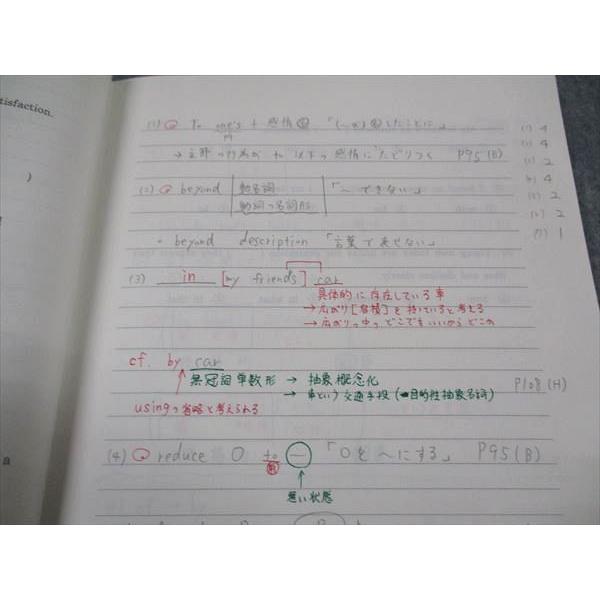 tisfaction.
)
a
(1) To one's + 感情 名 「(~が) 名 したことに」
→ 主節の行為が to 以下の感情に "たどりつく" P95(B)
(2) beyond 動名詞 「~できない」
動詞の名詞形
• beyond description 「言葉で表せない」
(3) in [my friends] car
具体的に存在している車
→ 広がり[容積]を持っていると考える
→ 広がりの中のどこでもいいからどこか
cf. by car
無冠詞単数形 → 抽象概念化
→ 車という交通手段 (目的性抽象名詞) P108(H)
usingの省略と考えられる
(4) reduce O to ― 「Oを~にする」 P95(B)
悪い状態
(1) 4
4
2
4
2
2
(7) 1